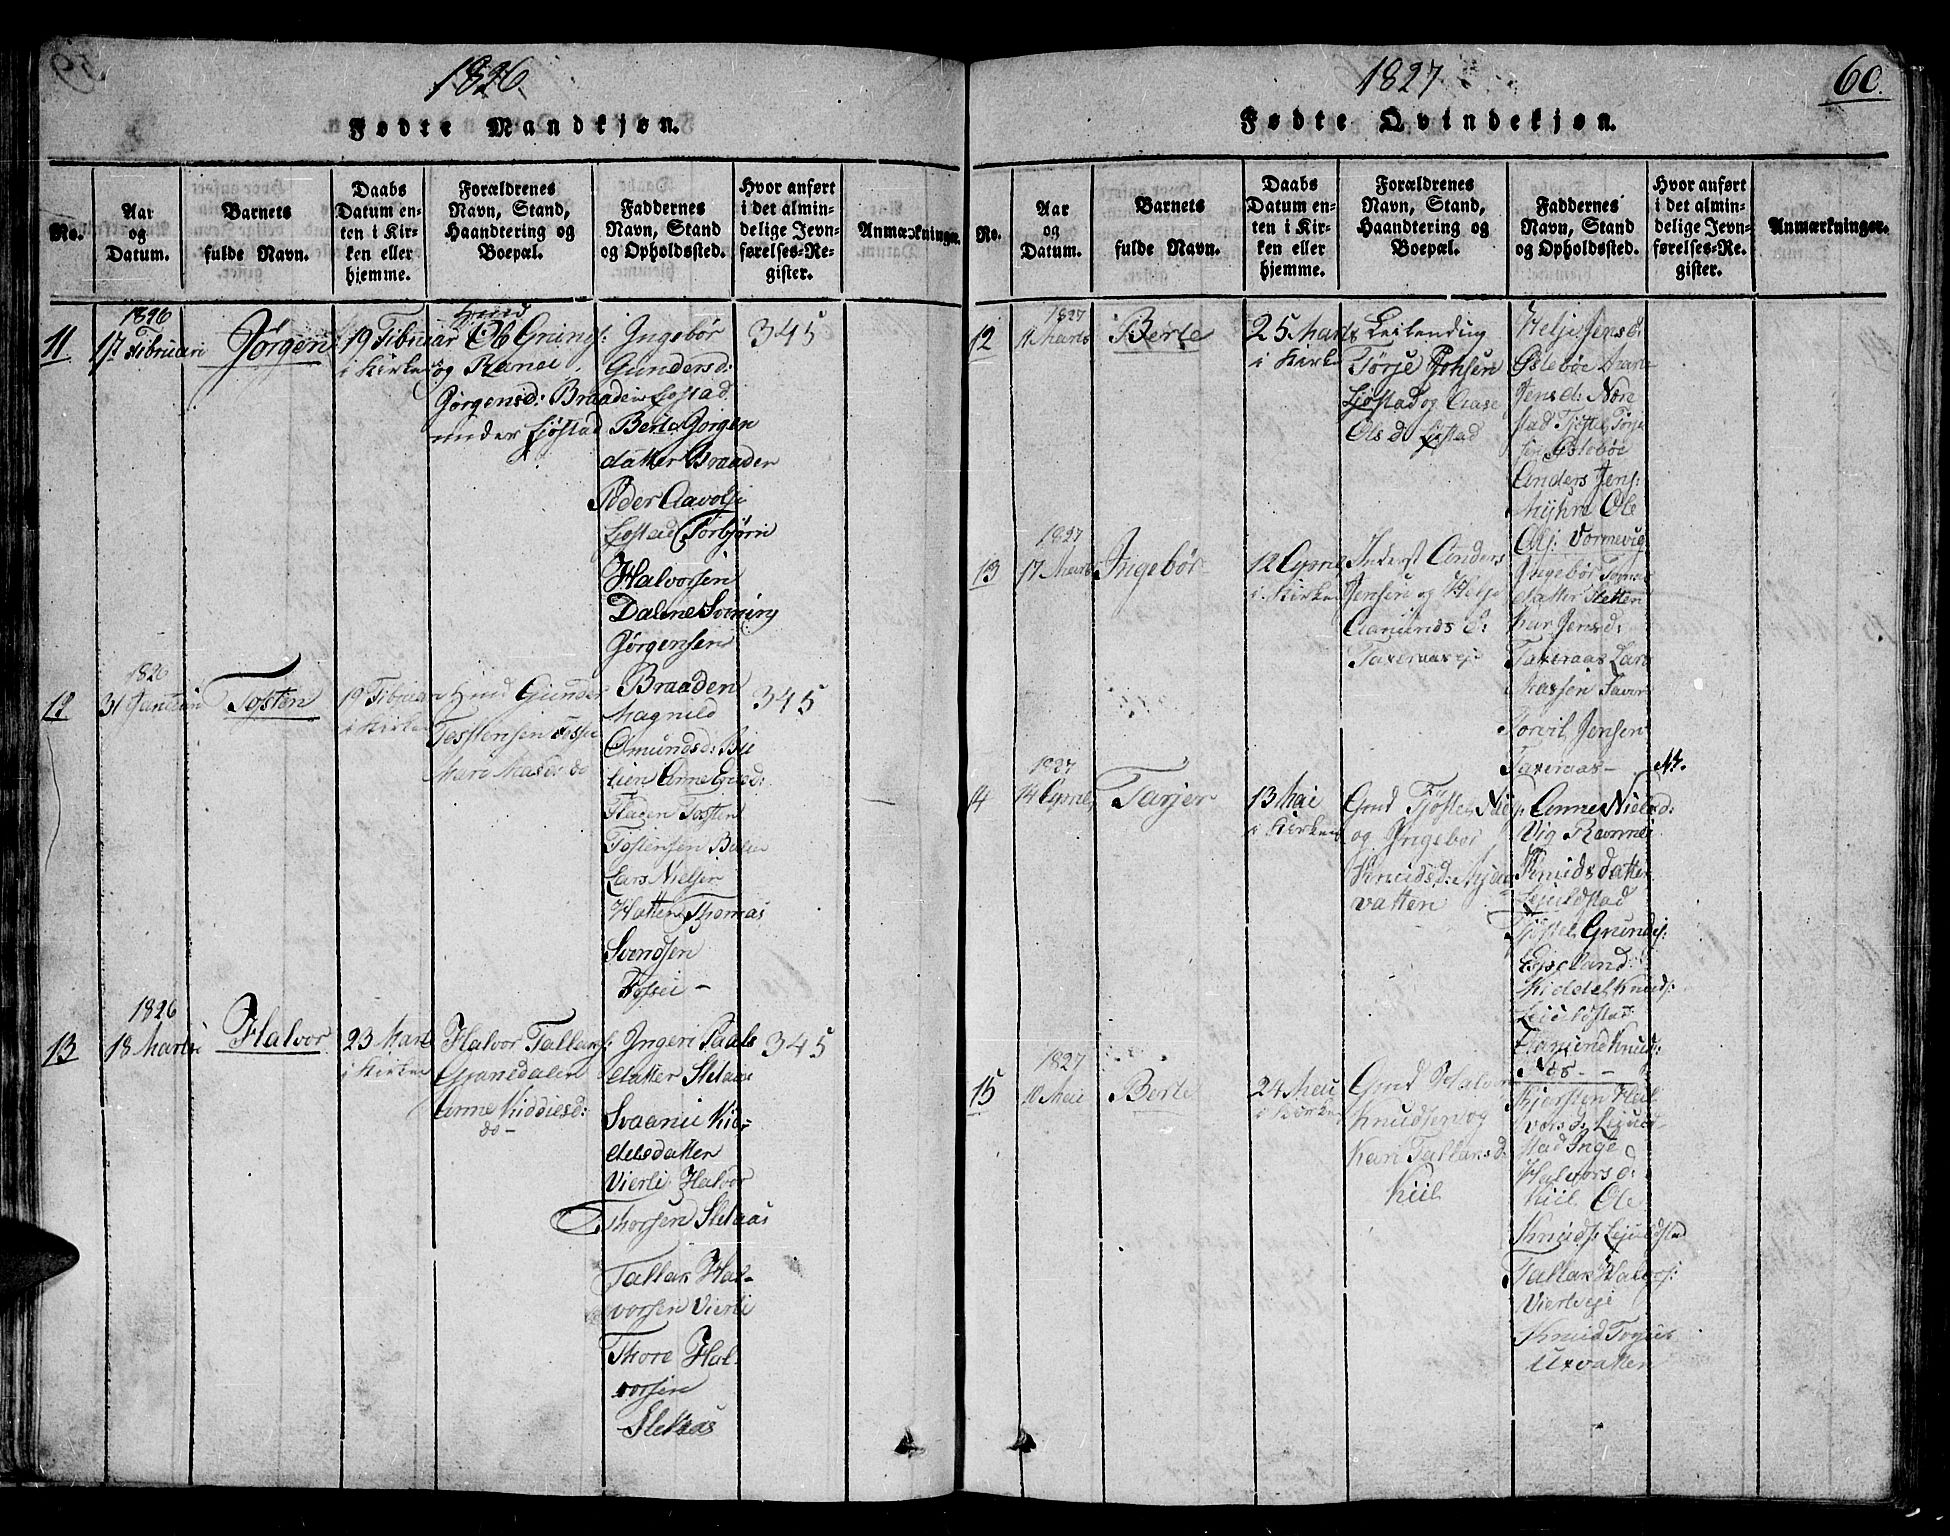 1826
Fødte Mandkjøn.
No.
Aar
og
Datum.
Barnets
fulde Navn.
Daabs
Datum en-
ten i Kir-
ken eller
hjemme.
Forældrenes
Navn, Stand,
Haandtering og
Boepæl.
Faddernes
Navn, Stand
og Opholdssted.
Hvor anført
i det almin-
delige Jevn-
førelses-Re-
gister.
Anmærkninger.
11
1826
17 Februari
Jørgen
19 Februar
i Kirken
Huusd
Ole Grunds:
og Ranei
Gørgensd: Braaden
under Ljøstad
Ingebør
Gundersd:
Ljøstad
Berte Jørgen
datter Braaden
Peder Aavolse
Ljøstad Torbjørn
Halvorsen
Dalene Svining
Jørgensen
Braaden
345
12
1826
31 Januari
Tosten
19 Februari
i Kirken
Huusd Gunder
Tostensen Fossei
Mari Madsd do
Magnild
Omundsd: Bie
lien Anne
Fladen Tosten
Tostensen Bielien
Lars Nielsen
Hatten Thomas
Svendsen
Fossei -
345
13
1826
18 Martii
Halvor
23 Mart
i Kirken
Halvor Tallans:
Granedalen
Anne Kiddlesd:
do -
Ingeri Paals
datter Sletaas
Svaanu Kid-
delsdatter
Vierli Halvor
Thorsen Sletaas
Tallax Hal-
vorsen Vierli
Thore Hal-
vorsen
Sletaas
345
1827
60.
Fødte Qvindekjøn.
No.
Aar
og
Datum.
Barnets
fulde Navn.
Daabs
Datum en-
ten i Kir-
ken eller
hjemme.
Forældrenes
Navn, Stand,
Haandtering og
Boepæl.
Faddernes
Navn, Stand
og Opholdssted.
Hvor anført
i det almin-
delige Jevn-
førelses-Re-
gister.
Anmærkninger.
12
1827
11 Marts
Berte
25 Marts
i Kirken
Leilending
Tørje Johsen
Ljøstad og Aase
Ols d: Ljøstad
Helje Jensd:
Oslebøe
Jensd: Nore
stad Tjøstel Tørje
sen Oslebøe
Anders Jens:
Myhre Ole
Ols: Vormevig
13
1827
17 Marts
Ingebør
12 Apriel
i Kirken
Inderst Anders
Jensen og Helje
Aamunds d:
Taxeraaseje
Ingebør Tommes
datter Sletten
Kari Jensd:
Taxeraas Lars
Torvil Jensen
Taxeraas -
14
1827
14 Apriel
Tarjer
13 Mai
i Kirken
Gmd Tjøstel Niels:
og Ingebor
Knudsd: Myde
vatten
Anne Nielsd:
Vig Rannei
Knudsdatter
Lejuldstad
Tjøstel Grunds:
Epseland:
Kiddel Knuds:
Lejuldstad
Aamund Knud:
Næs - -
Nt.
15
1827
10 Meii
Berte
24 Meii
i Kirken
Gmd Halvor
Knudsen og
Kari Tallaxsd:
Kiil
Kjersten Hal
vorsd: Lejuld
stad Inge
Halvorsd:
Kiil Ole
Knuds: Lejuldstad
Tallax Halvors:
Vierliveje
Knud Togius
Uxvatten